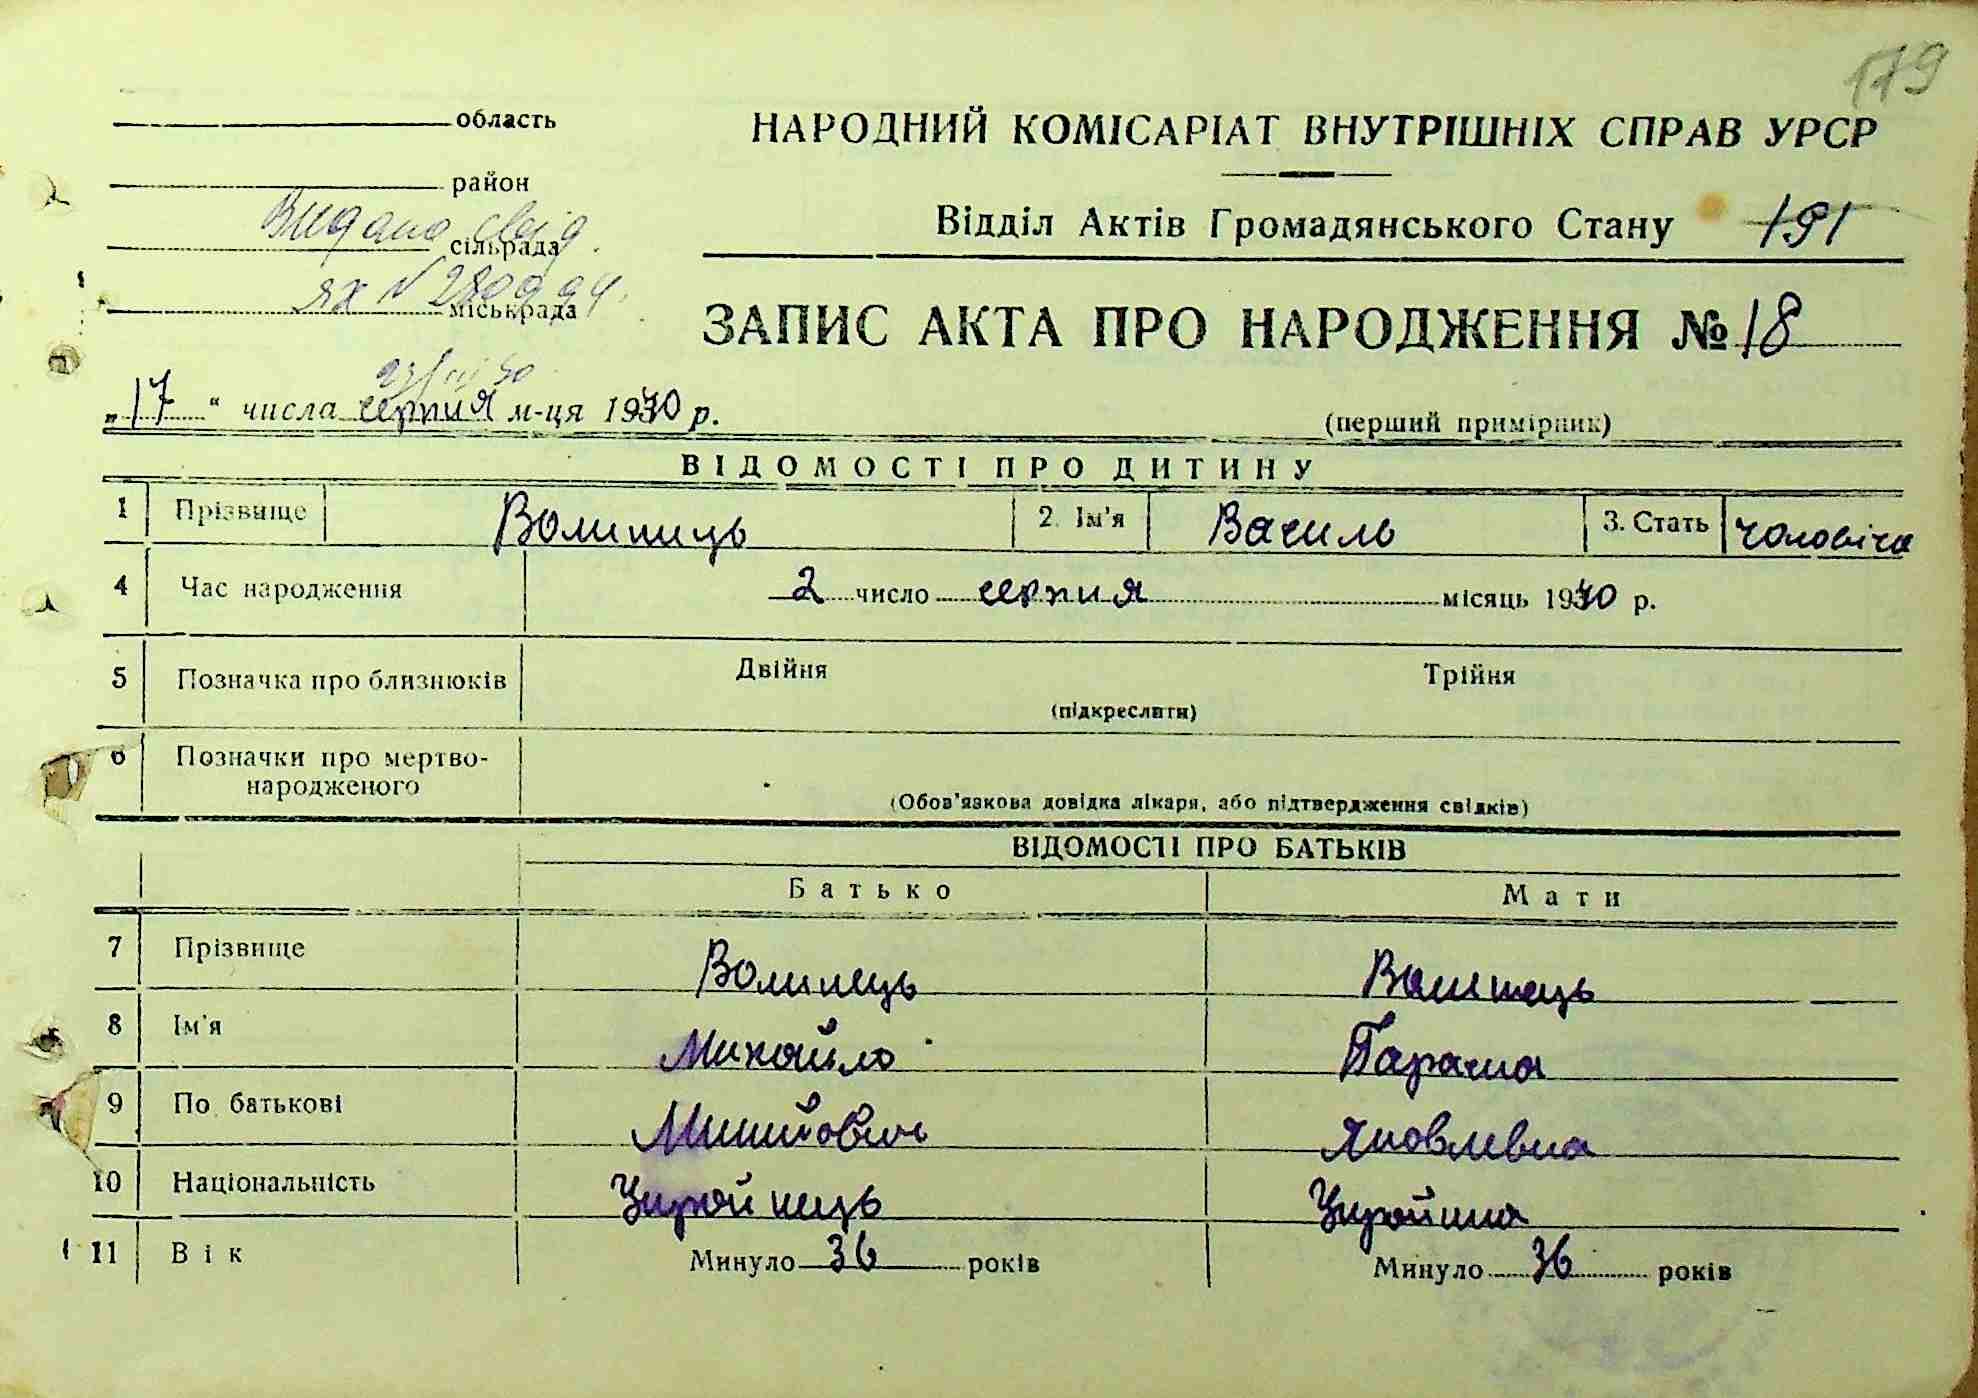 179
область
НАРОДНИЙ КОМІСАРІАТ ВНУТРІШНІХ СПРАВ УРСР
район
Видано свід.
сільрада
Відділ Актів Громадянського Стану 191
ЯХ № 280994
міськрада
ЗАПИС АКТА ПРО НАРОДЖЕННЯ № 18
„17“ числа серпня м-ця 1940 р.
(перший примірник)
ВІДОМОСТІ ПРО ДИТИНУ
1 Прізвище Волинець 2. Ім'я Василь 3. Стать чоловіча
4 Час народження 2 число серпня місяць 1940 р.
5 Позначка про близнюків Двійня Трійня
(підкреслити)
6 Позначки про мертво-
народженого
(Обов'язкова довідка лікаря, або підтвердження свідків)
ВІДОМОСТІ ПРО БАТЬКІВ
Батько Мати
7 Прізвище Волинець Волинець
8 Ім'я Михайло Параска
9 По батькові Яковлевна
10 Національність Українець Українка
11 Вік Минуло 36 років Минуло 36 років